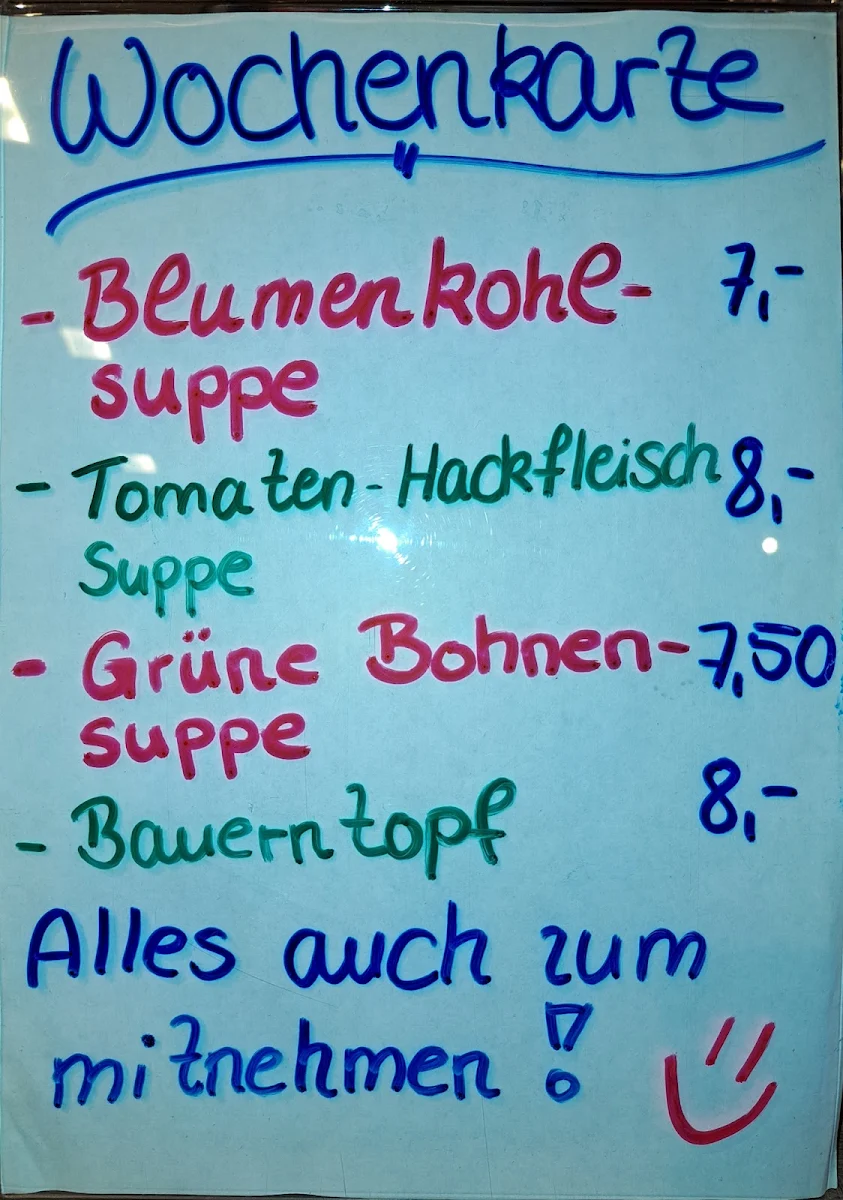 Wochenkarte
- Blumenkohl- 7,-
suppe
- Tomaten-Hackfleisch 8,-
Suppe
- Grüne Bohnen- 7,50
suppe
- Bauerntopf 8,-
Alles auch zum
mitnehmen !